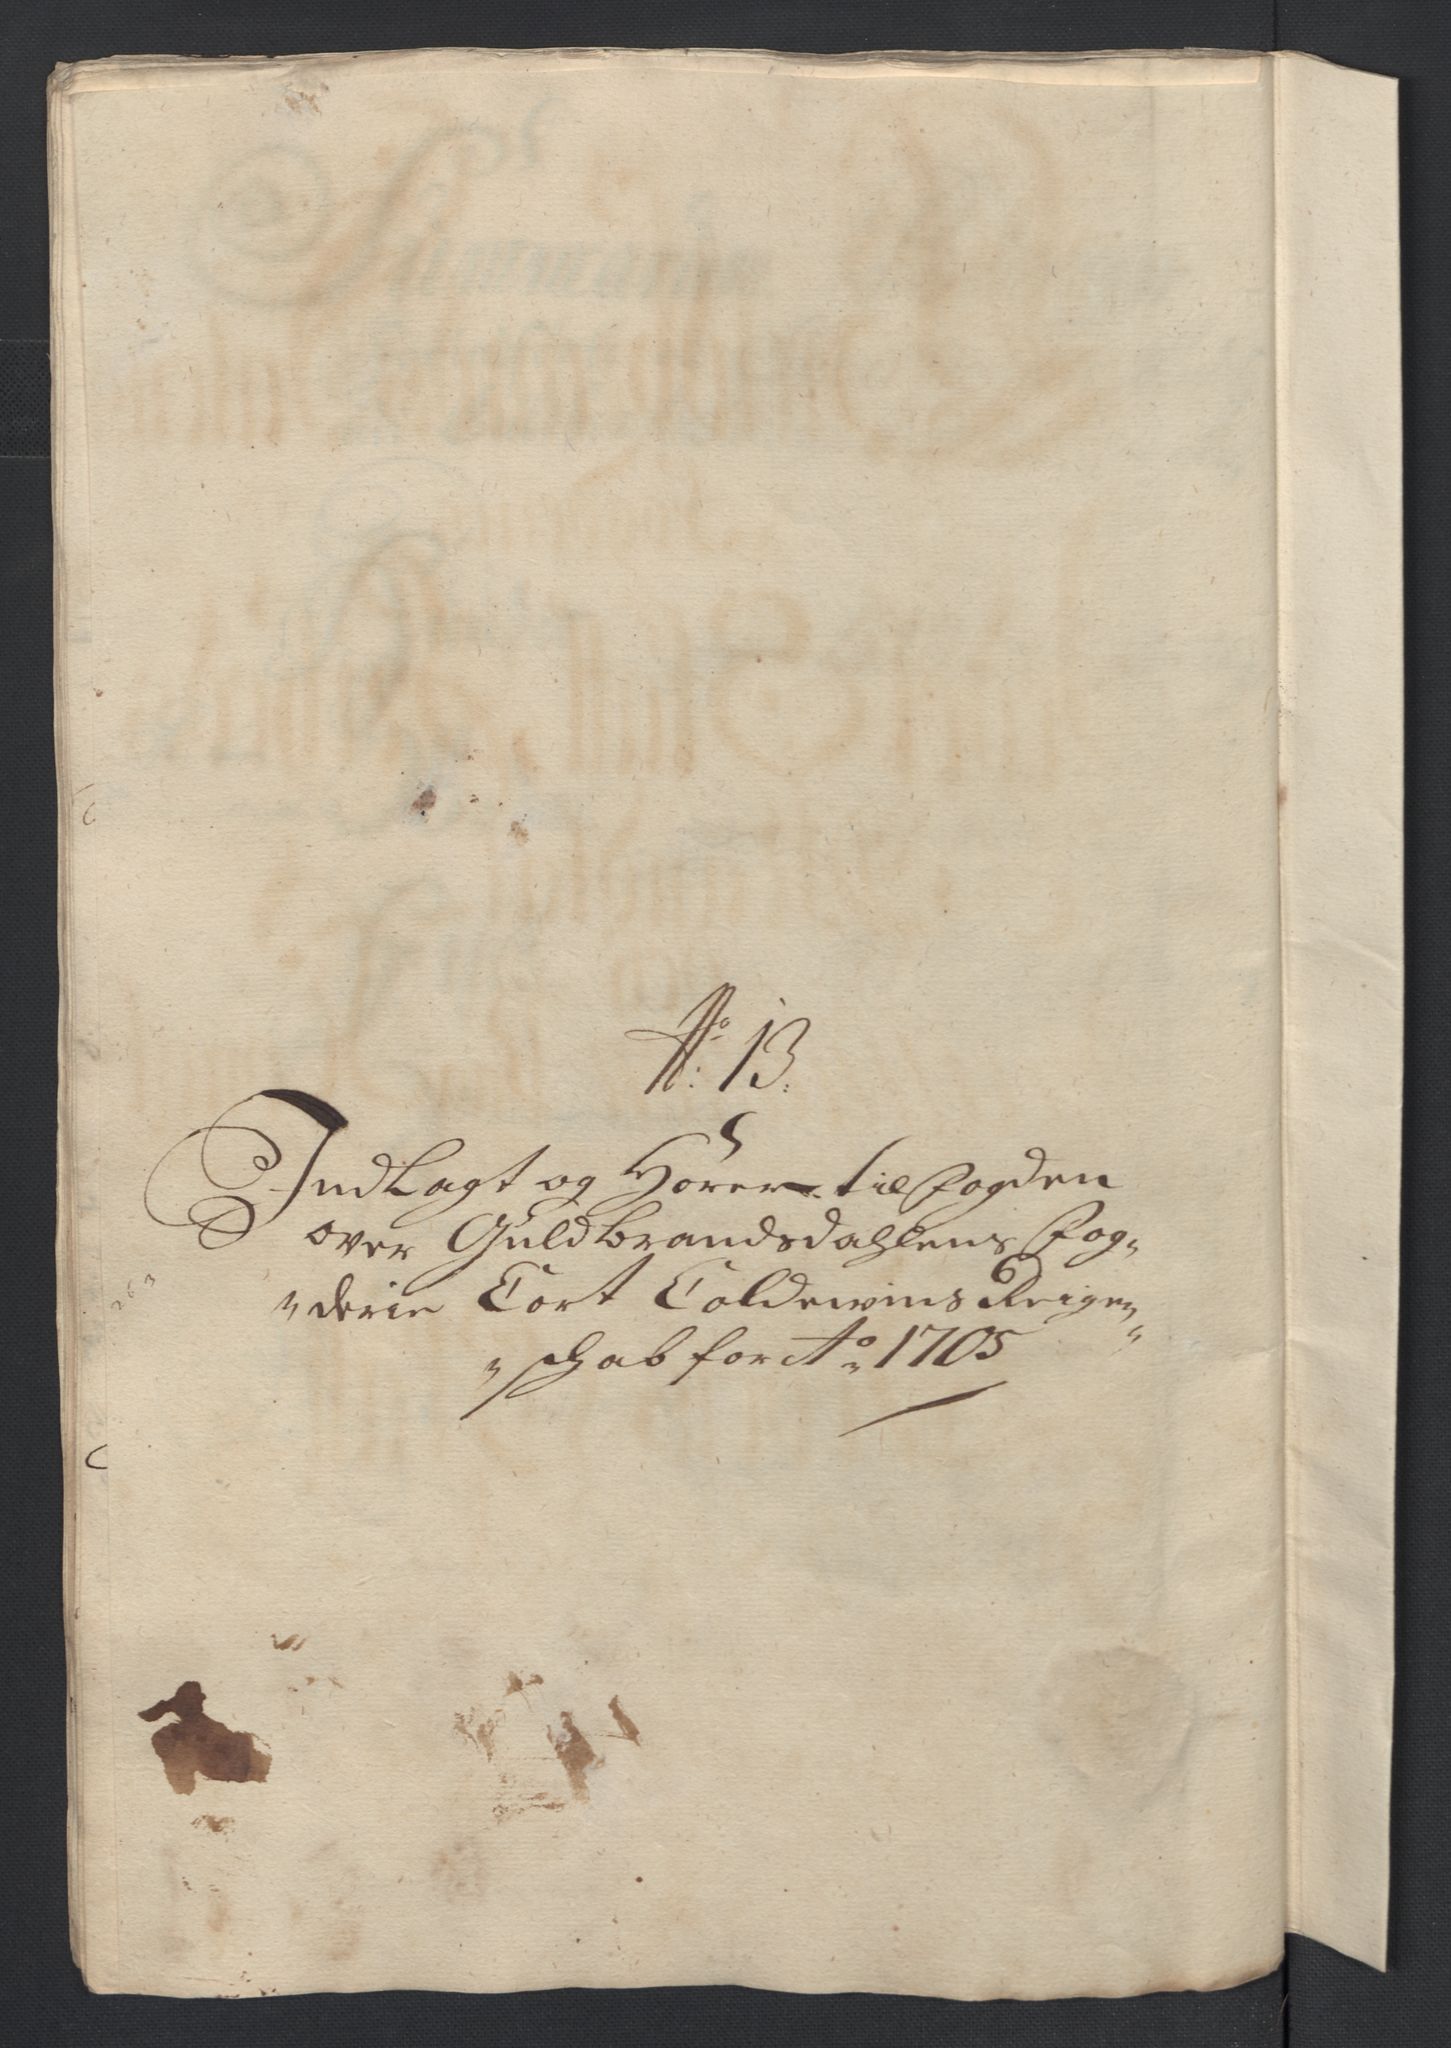 No: 13.
Indlagt og Hörer til fogden
over Guldbrandsdahlens fog-
derie Cort Coldewins Reigen-
schab for Ao 1705
263